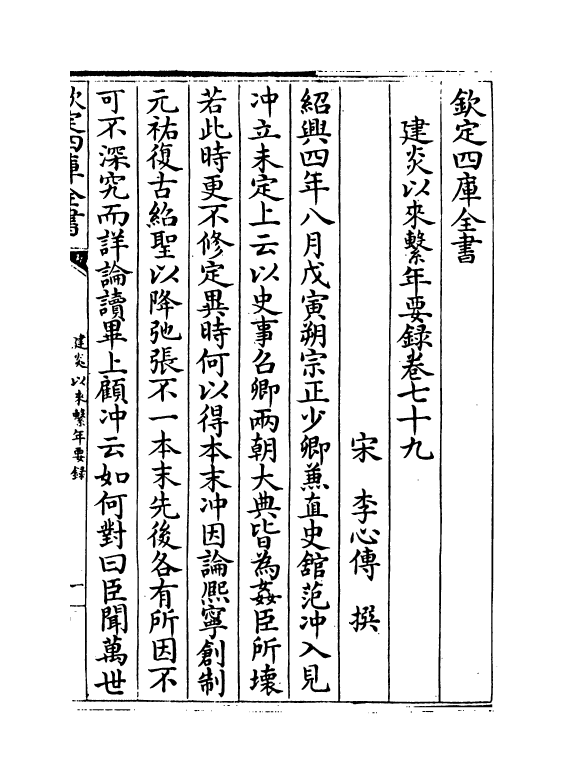 欽定四庫全書
建炎以來繫年要錄卷七十九
宋 李心傳 撰
紹興四年八月戊寅朔宗正少卿兼直史舘范冲入見
冲立未定上云以史事召卿兩朝大典皆為姦臣所壞
若此時更不修定異時何以得本末冲因論熈寧創制
元祐復古紹聖以降弛張不一本末先後各有所因不
可不深究而詳論讀畢上顧冲云如何對曰臣聞萬世
欽定四庫全書
建炎以來繫年要錄
一